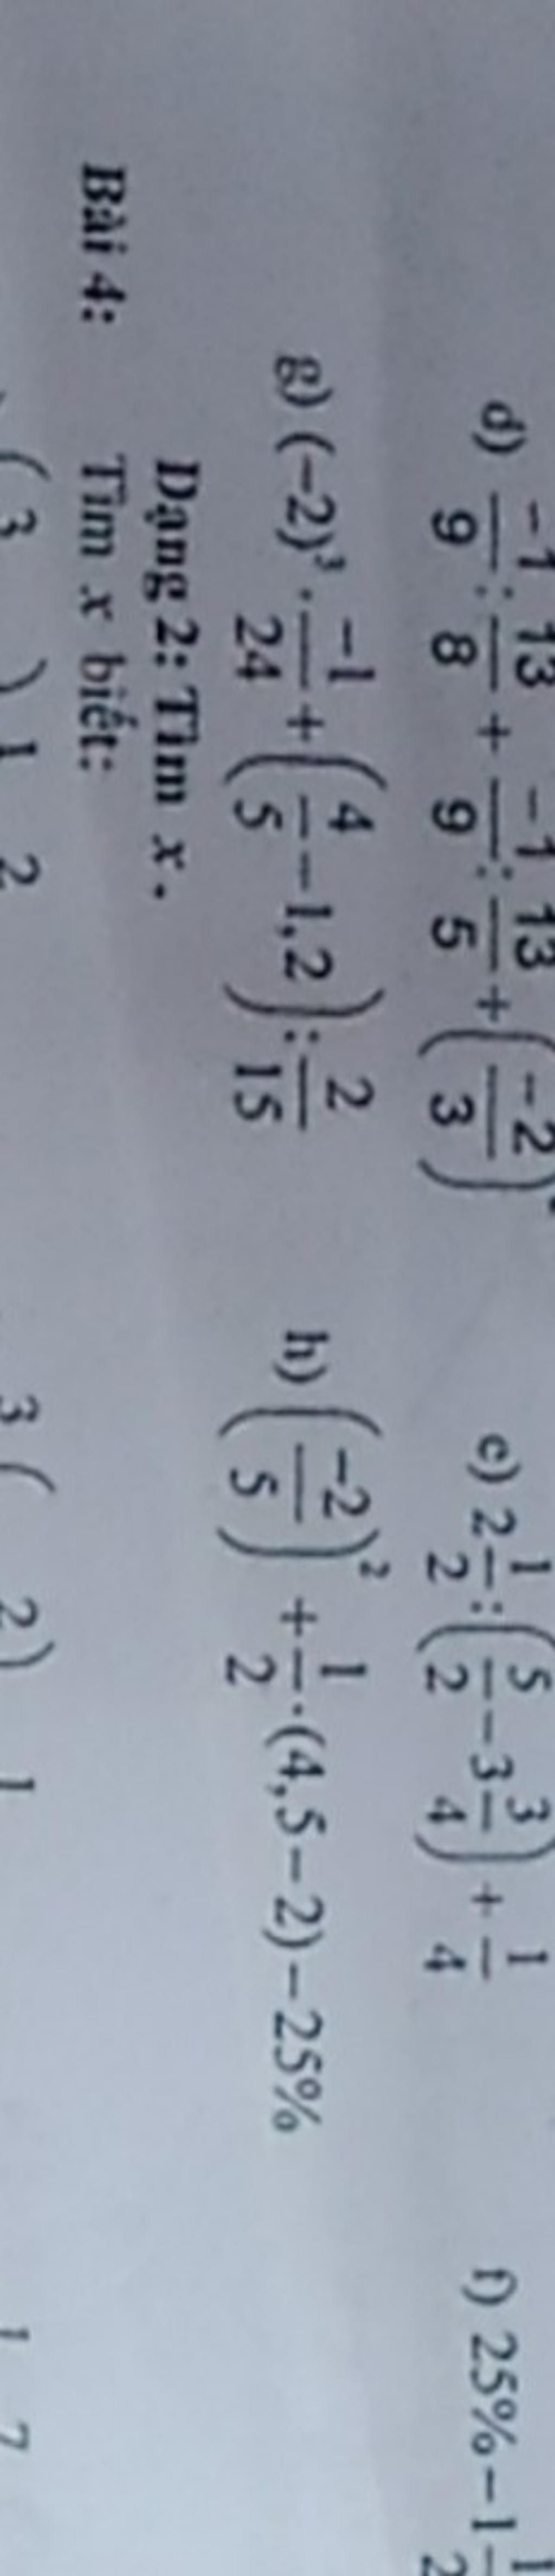 d) \frac{-1}{9} : \frac{13}{8} + \frac{-1}{9} : \frac{13}{5} + \left(\frac{-2}{3}\right) e) 2\frac{1}{2} : \left(\frac{5}{2} - 3\frac{3}{4}\right) + \frac{1}{4} f) 25% - 1\frac{1}{2}
g) (-2)^3 . \frac{-1}{24} + \left(\frac{4}{5} - 1,2\right) : \frac{2}{15} h) \left(\frac{-2}{5}\right)^2 + \frac{1}{2} . (4,5 - 2) - 25%
Dạng 2: Tìm x.
Bài 4: Tìm x biết: